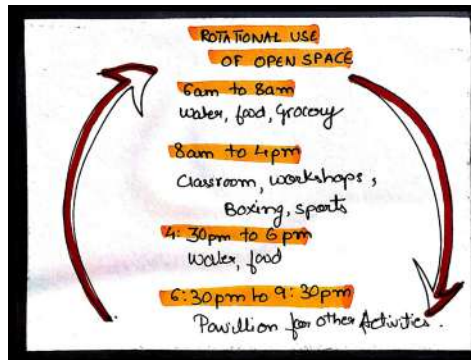 ROTATIONAL USE
OF OPEN SPACE
6am to 8am
Water, food, Grocery
8am to 4pm
Classroom, workshops,
Boxing, sports
4:30pm to 6pm
Water, food
6:30pm to 9:30pm
Pavillion for other Activities.